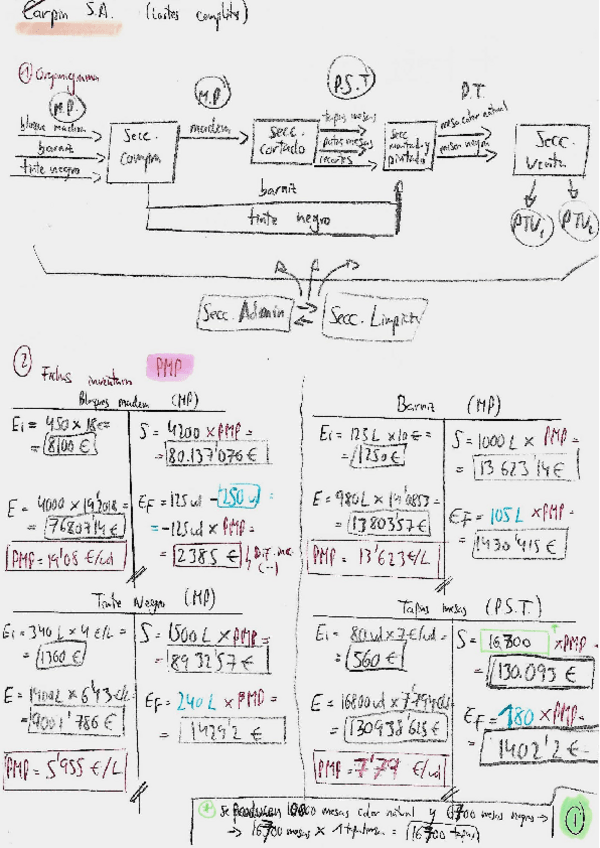 Carpin S.A. (Costes completos)
① Organigrama
M.P. M.P P.S.T P.T.
bloque madera
barniz
tinte negro
Secc. compra
madera
Secc. cortado
tapas mesas
patas mesas
recortes
Secc montado y pintado
mesa color natural
mesa negra
Secc venta
PTV₁ PTV₂
barniz
tinte negro
Secc. Admin Secc. Limpieza
② Fichas inventario PMP
Bloques madera (MP)
Ei = 450 x 18€=
= 8100 €
S = 4200 x PMP =
= 80.137'076 €
E = 4000 x 19'2018 =
= 76807'14 €
EF = 125 ud - 250 ud =
= -125ud x PMP =
= 2385 €
PMP = 19'08 €/ud
Barniz (MP)
Ei = 125 L x 10 €=
= 1250€
S = 1000 L x PMP =
= 13623'14€
E = 980L x 14'0853=
= 13803'57€
EF = 105 L x PMP=
= 1430'415 €
PMP = 13'623€/L
Tinte Negro (MP)
Ei = 340 L x 4 €/L =
= 1360€
S = 1500 L x PMP =
= 8932'57€
E = 1400L x 6'43€/L=
= 9001'786 €
EF = 240 L x PMP =
= 1429'2 €
PMP = 5'955 €/L
Tapas mesas (P.S.T.)
Ei = 80 ud x 7 €/ud =
= 560 €
S = 16.700 x PMP =
= 130.093 €
E = 16800ud x 7'794€/ud
= 130938'625€
EF = 180 x PMP=
= 1402'2 €
PMP = 7'79 €/ud
* Se producen 10000 mesas color natural y 6700 mesas negras →
→ 16700 mesas x 1 tapa/mesa = 16700 tapas
①